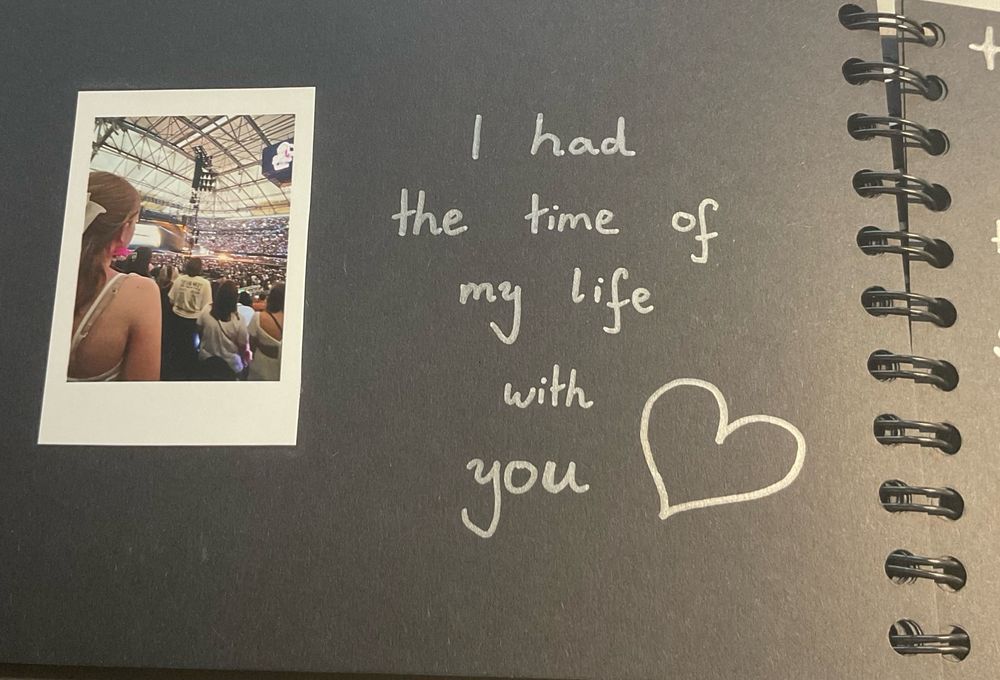 I had
the time of
my life
with
you